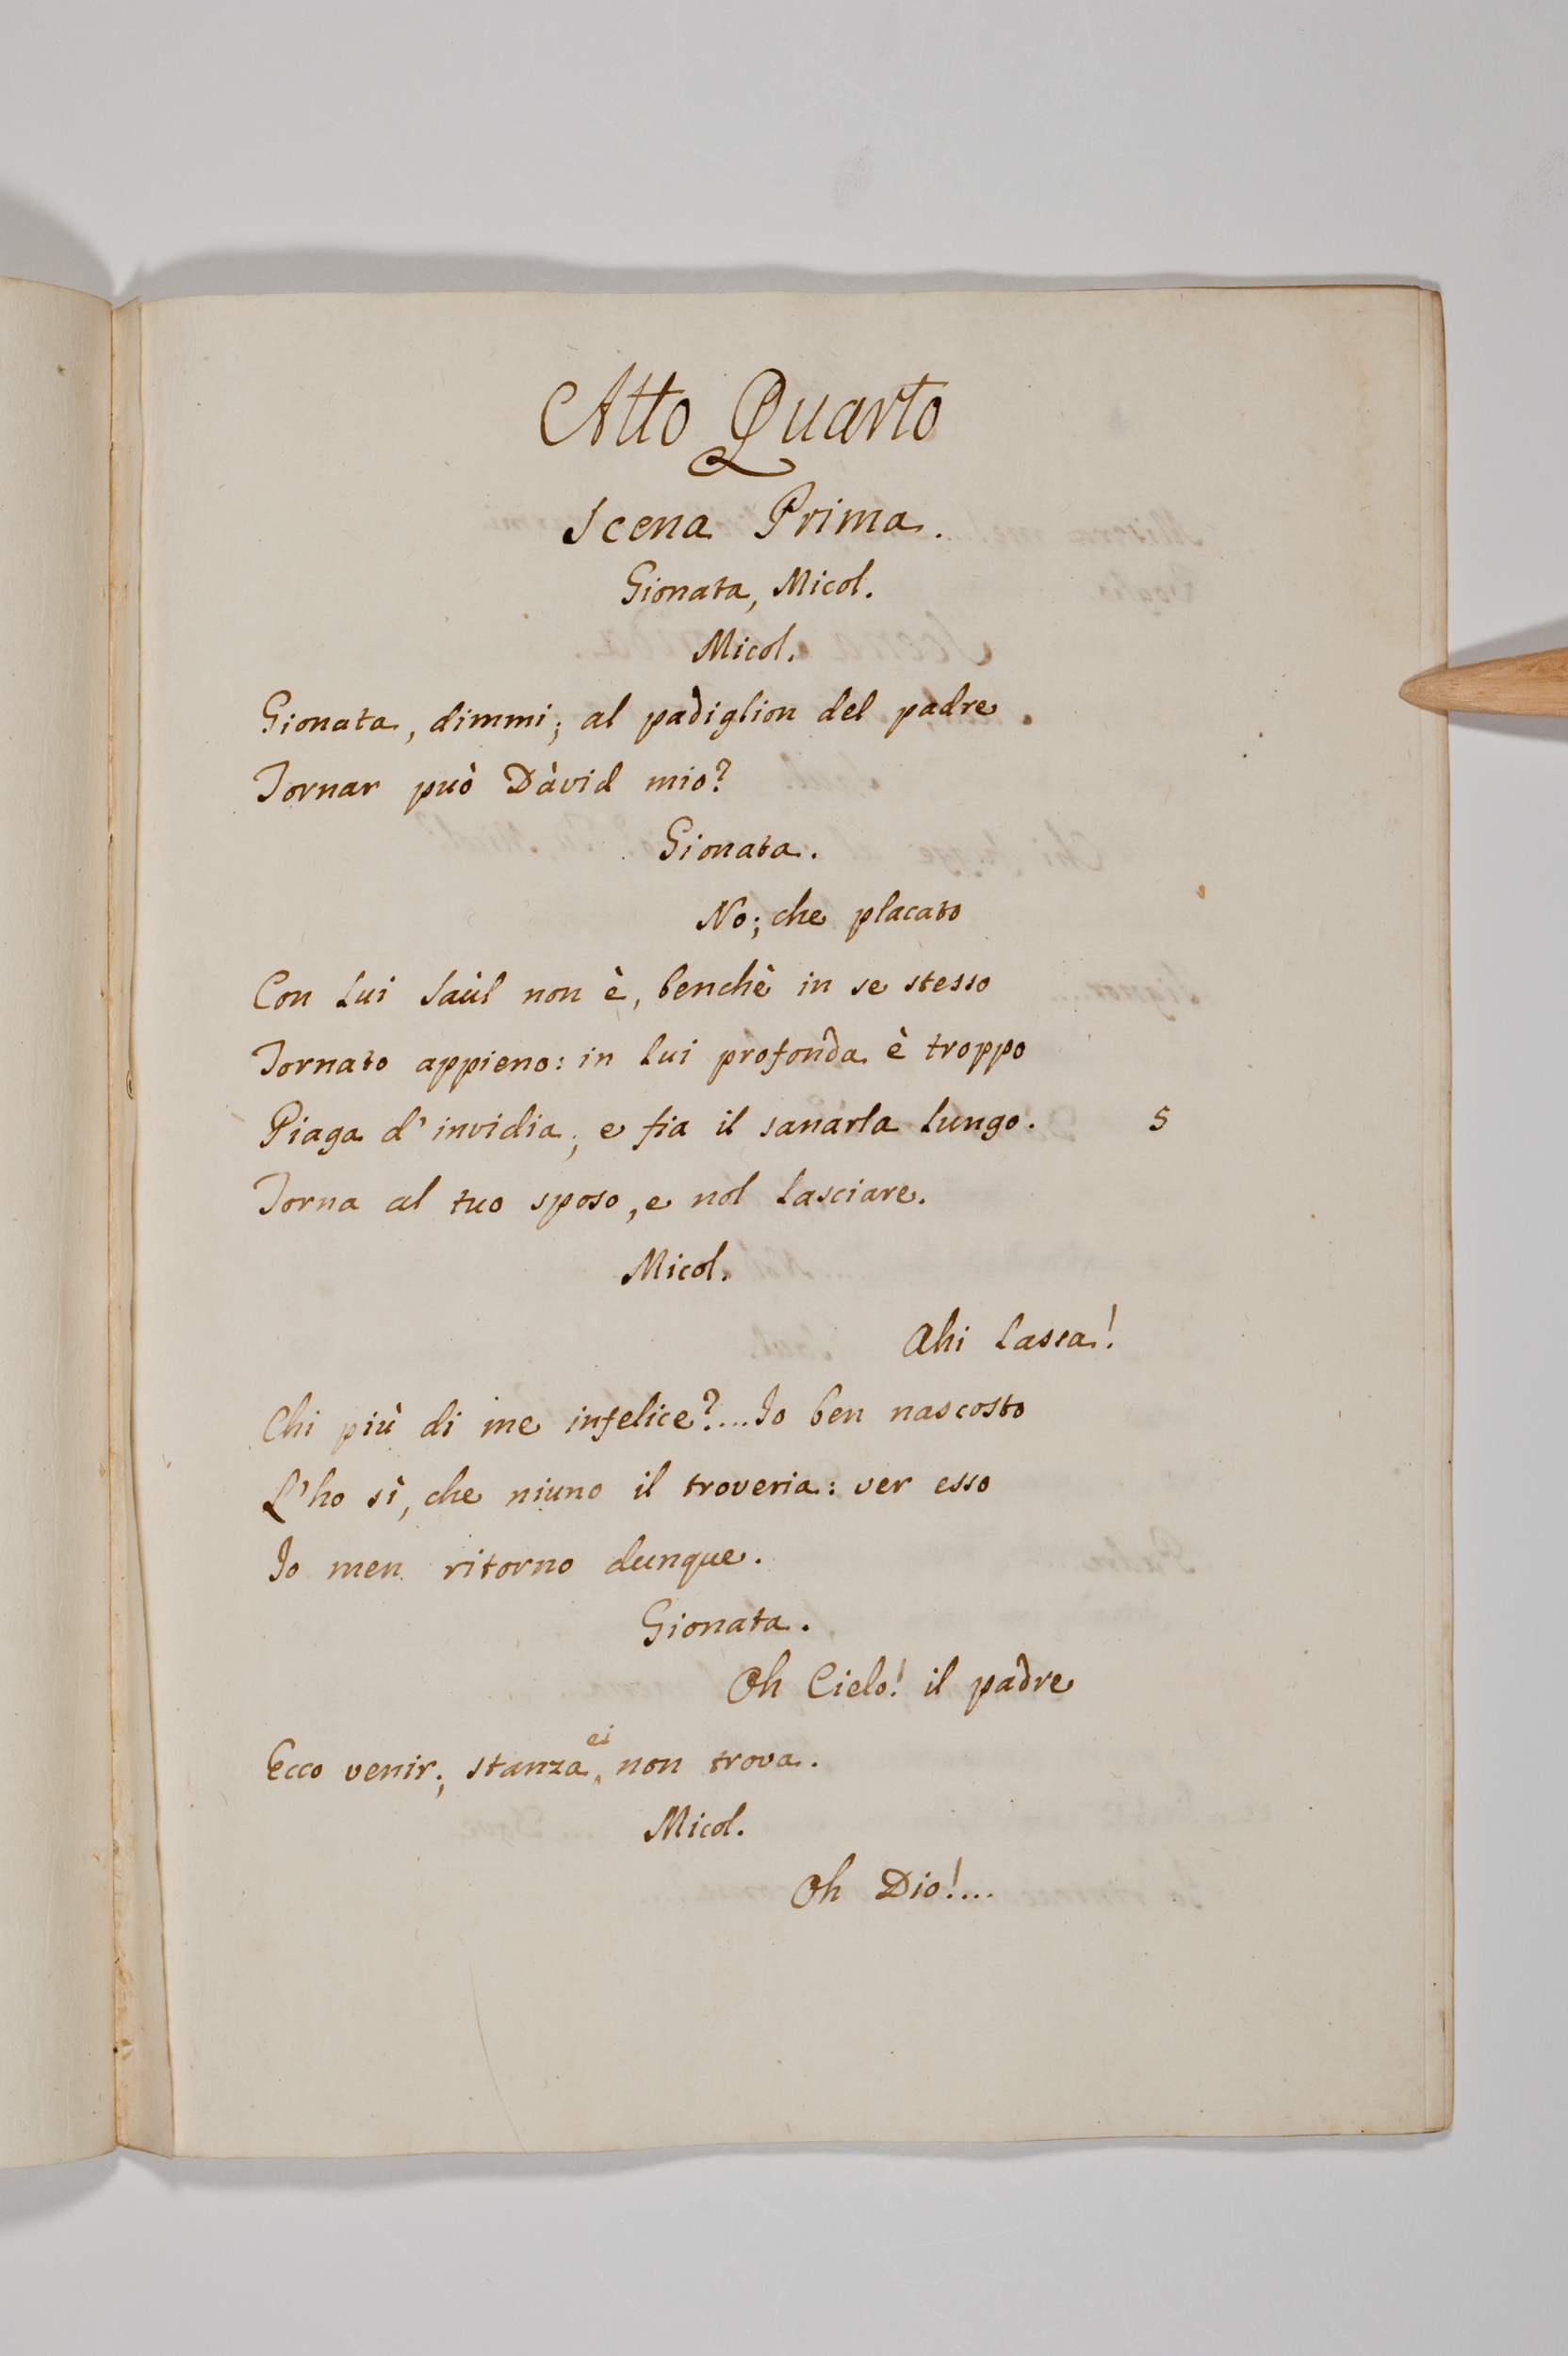 Atto Quarto
Scena Prima.
Gionata, Micol.
Micol.
Gionata, dimmi; al padiglion del padre
Tornar può Dàvid mio?
Gionata.
No; che placato
Con lui Saùl non è, benchè in se stesso
Tornato appieno: in lui profonda è troppo
Piaga d'invidia; e fia il sanarla lungo. 5
Torna al tuo sposo, e nol lasciare.
Micol.
Ahi lassa!
Chi più di me infelice?...Io ben nascosto
L'ho sì, che niuno il troveria: ver esso
Io men ritorno dunque.
Gionata.
Oh Cielo! il padre
Ecco venir; stanza ei non trova.
Micol.
Oh Dio!...